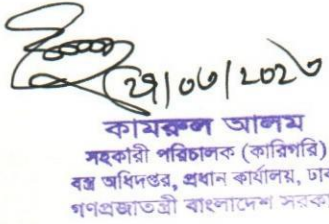 কামরুল আলম
সহকারী পরিচালক (কারিগরি)
বস্ত্র অধিদপ্তর, প্রধান কার্যালয়, ঢাক
গণপ্রজাতন্ত্রী বাংলাদেশ সরকা